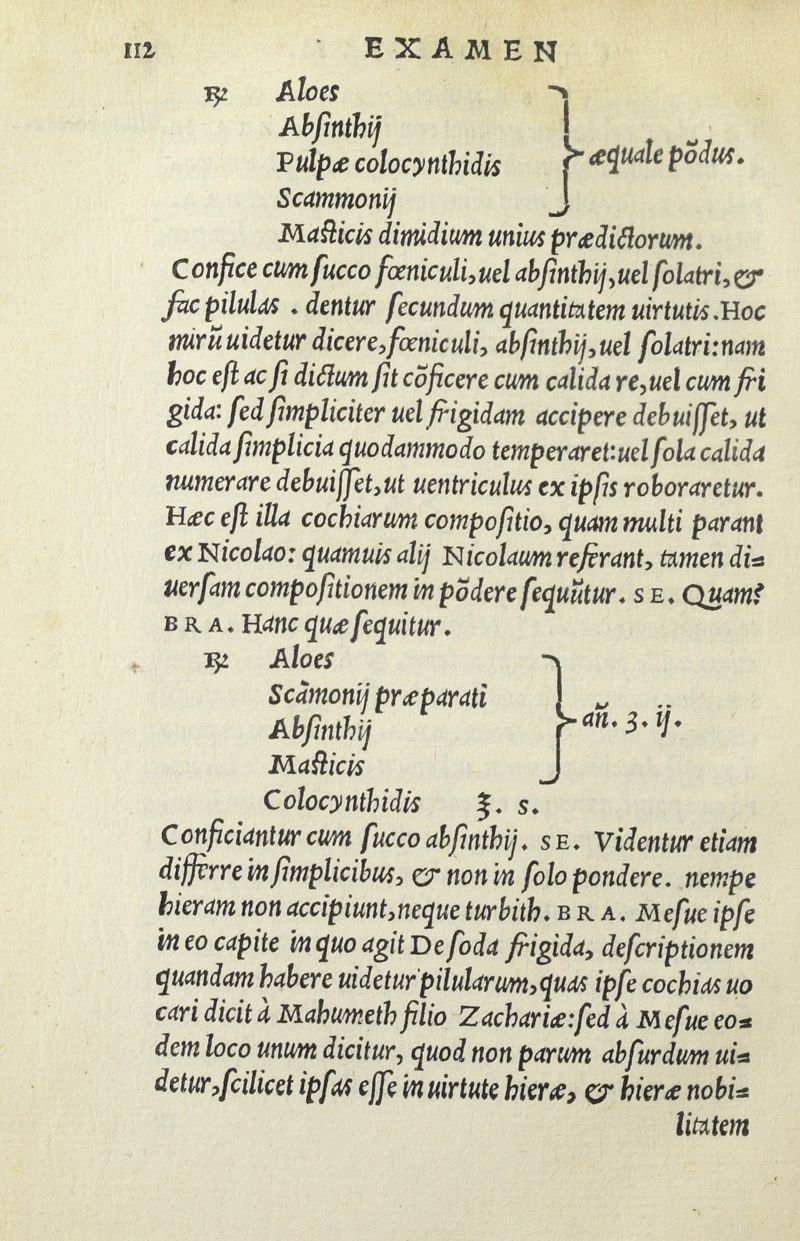 112 EXAMEN
℞ Aloes
Abſinthij
Pulpæ colocynthidis } æquale põdus.
Scammonij
Maſticis dimidium unius prædictorum.
Confice cum ſucco fœniculi, uel abſinthij, uel ſolatri, &
fac pilulas . dentur ſecundum quantitatem uirtutis. Hoc
mirũ uidetur dicere, fœniculi, abſinthij, uel ſolatri: nam
hoc eſt ac ſi dictum ſit cõficere cum calida re, uel cum fri
gida: ſed ſimpliciter uel frigidam accipere debuiſſet, ut
calida ſimplicia quodammodo temperaret: uel ſola calida
numerare debuiſſet, ut uentriculus ex ipſis roboraretur.
Hæc eſt illa cochiarum compoſitio, quam multi parant
ex Nicolao: quamuis alij Nicolaum referant, tamen di=
uerſam compoſitionem in põdere ſequũtur. SE. Quam?
BRA. Hanc quæ ſequitur.
℞ Aloes
Scãmonij præparati
Abſinthij } añ. ʒ. ij.
Maſticis
Colocynthidis ℥. s.
Conficiantur cum ſucco abſinthij. SE. Videntur etiam
differre in ſimplicibus, & non in ſolo pondere. nempe
hieram non accipiunt, neque turbith. BRA. Meſue ipſe
in eo capite in quo agit De ſoda frigida, deſcriptionem
quandam habere uidetur pilularum, quas ipſe cochias uo
cari dicit à Mahumeth filio Zachariæ: ſed à Meſue eo=
dem loco unum dicitur, quod non parum abſurdum ui=
detur, ſcilicet ipſas eſſe in uirtute hieræ, & hieræ nobi=
litatem